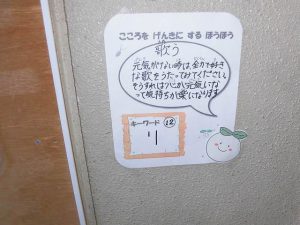 こころを げんきに する ほうほう
歌う
元気がない時は、全力で好き
な歌をうたってみてください。
そうすれば心が元気にな
って気持ちが楽になります
キーワード ⑫
り